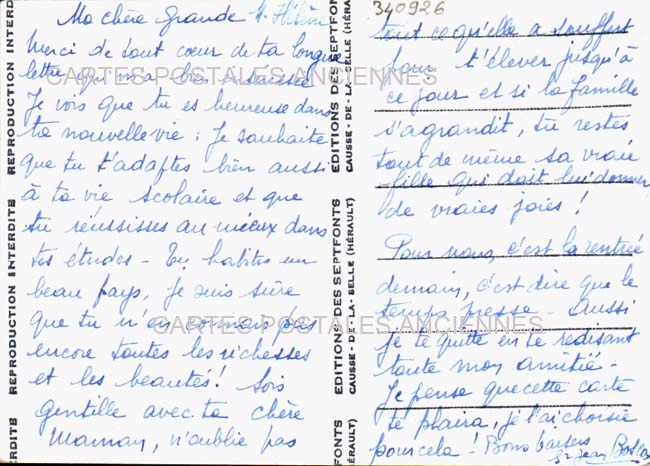 Ma chère grande M. Hélène
Merci de tout cœur de ta longue
lettre qui m'a fait plaisir
Je vois que tu es heureuse dans
ta nouvelle vie ; Je souhaite
que tu t'adaptes bien aussi
à ta vie scolaire et que
tu réussisses au mieux dans
tes études - Tu habites un
beau pays, je suis sûre
que tu n'en connais pas
encore toutes les richesses
et les beautés ! Sois
gentille avec ta chère
Maman, n'oublie pas
340926
tout ce qu'elle a souffert
pour t'élever jusqu'à
ce jour et si la famille
s'agrandit, tu restes
tout de même sa vraie
fille qui doit lui donner
de vraies joies !
Pour nous, c'est la rentrée
demain, c'est dire que le
temps presse - Aussi
je te quitte en te redisant
toute mon amitié -
Je pense que cette carte
te plaira, je l'ai choisie
pour cela ! Bons baisers
Sr Jean
REPRODUCTION INTERDITE
REPRODUCTION INTERDITE
ERDITE
EDITIONS DES SEPTFONTS
CAUSSE - DE - LA - SELLE (HÉRAULT)
EDITIONS DES SEPTFONTS
CAUSSE - DE - LA - SELLE (HÉRAULT)
FONTS
ÉRAULT)
CARTES POSTALES ANCIENNES
CARTES POSTALES ANCIENNES